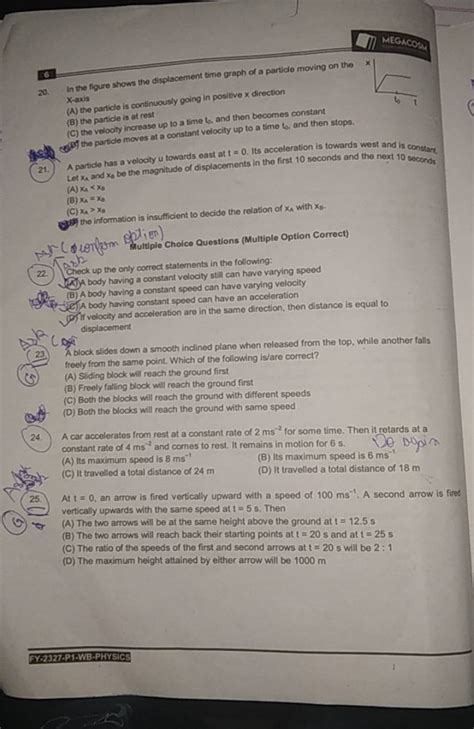 MEGACOSM
6
20. In the figure shows the displacement time graph of a particle moving on the
X-axis
x
t₀ t
(A) the particle is continuously going in positive x direction
(B) the particle is at rest
(C) the velocity increase up to a time t₀, and then becomes constant
(D) the particle moves at a constant velocity up to a time t₀, and then stops.
21. A particle has a velocity u towards east at t = 0. Its acceleration is towards west and is constant.
Let xA and xB be the magnitude of displacements in the first 10 seconds and the next 10 seconds
(A) xA < xB
(B) xA = xB
(C) xA > xB
(D) the information is insufficient to decide the relation of xA with xB.
Multiple Choice Questions (Multiple Option Correct)
22. Check up the only correct statements in the following:
(A) A body having a constant velocity still can have varying speed
(B) A body having a constant speed can have varying velocity
(C) A body having constant speed can have an acceleration
(D) If velocity and acceleration are in the same direction, then distance is equal to
displacement
23. A block slides down a smooth inclined plane when released from the top, while another falls
freely from the same point. Which of the following is/are correct?
(A) Sliding block will reach the ground first
(B) Freely falling block will reach the ground first
(C) Both the blocks will reach the ground with different speeds
(D) Both the blocks will reach the ground with same speed
24. A car accelerates from rest at a constant rate of 2 ms⁻² for some time. Then it retards at a
constant rate of 4 ms⁻² and comes to rest. It remains in motion for 6 s.
(A) Its maximum speed is 8 ms⁻¹ (B) Its maximum speed is 6 ms⁻¹
(C) It travelled a total distance of 24 m (D) It travelled a total distance of 18 m
25. At t = 0, an arrow is fired vertically upward with a speed of 100 ms⁻¹. A second arrow is fired
vertically upwards with the same speed at t = 5 s. Then
(A) The two arrows will be at the same height above the ground at t = 12.5 s
(B) The two arrows will reach back their starting points at t = 20 s and at t = 25 s
(C) The ratio of the speeds of the first and second arrows at t = 20 s will be 2 : 1
(D) The maximum height attained by either arrow will be 1000 m
FY-2327-P1-WB-PHYSICS